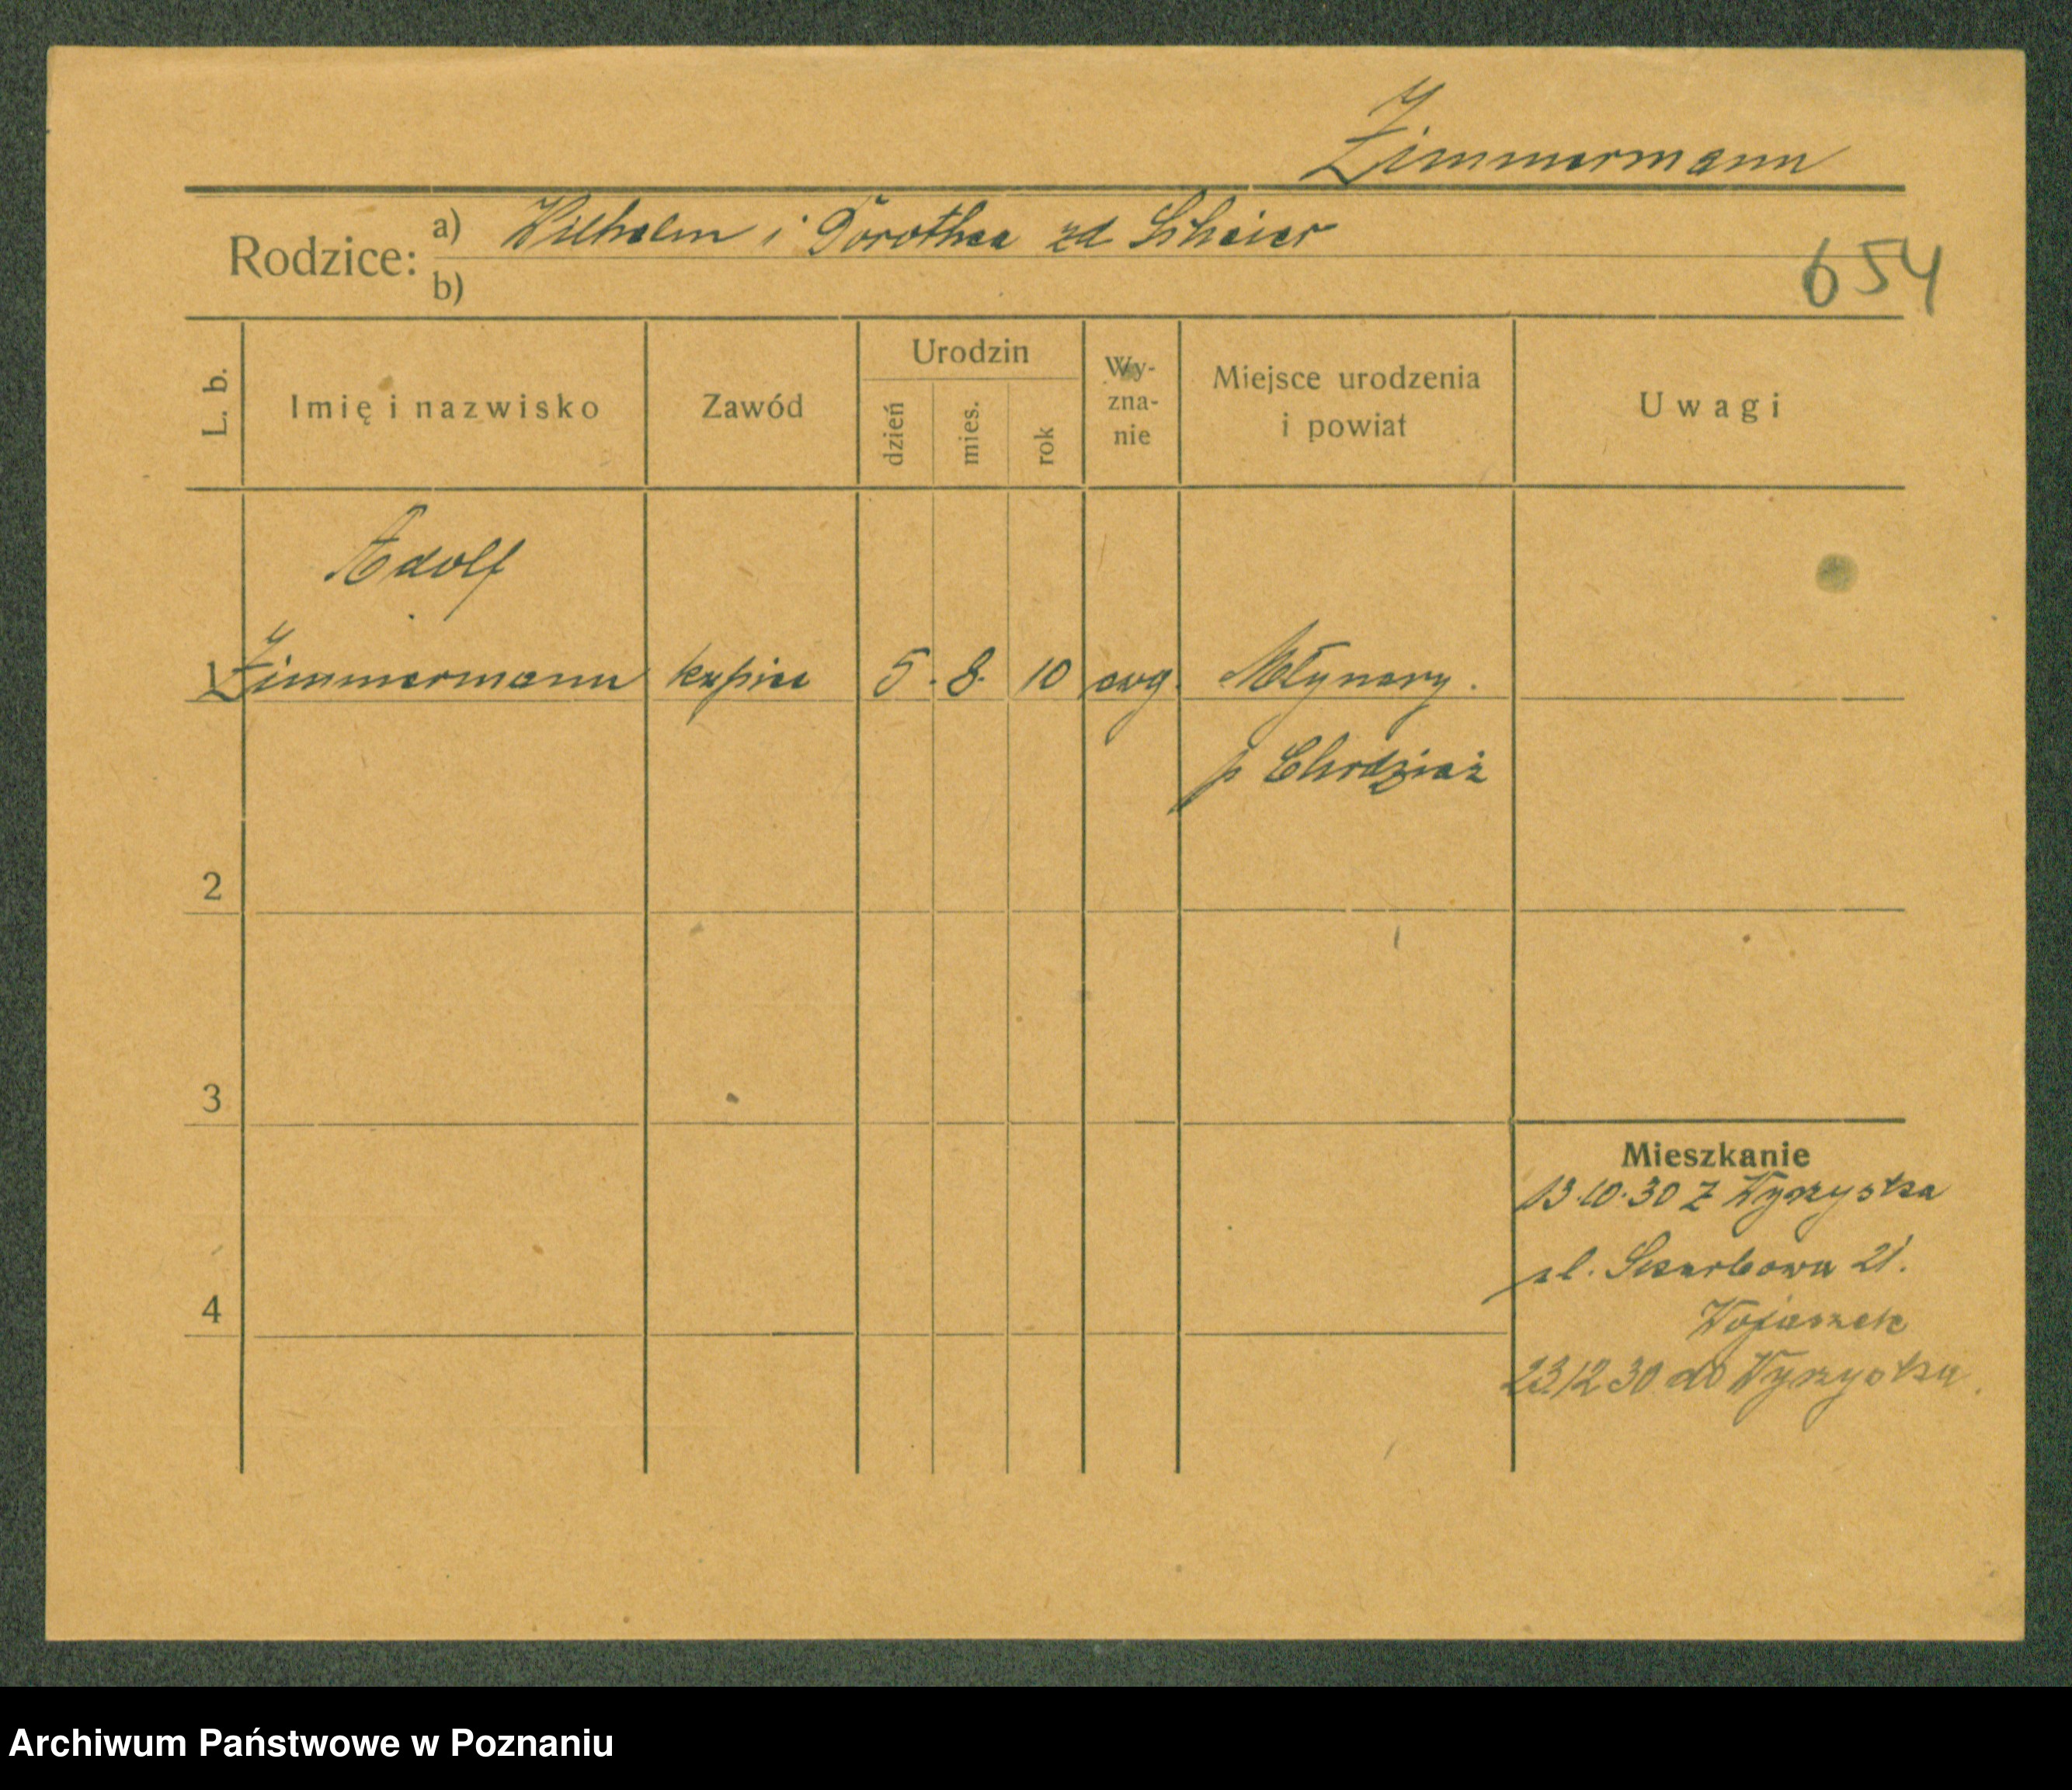 Zimmermann
Rodzice: a) Wilhelm i Dorothea zd Scheier
b)
654
L. b. Imię i nazwisko Zawód Urodzin dzień mies. rok Wy-zna-nie Miejsce urodzenia i powiat Uwagi
Adolf
1 Zimmermann kupiec 5. 8. 10 ewg. Młynary.
p Chodzież
2
3
Mieszkanie
13.10.30 z Wyrzyska
ul. Skarbowa 21.
4
Wojaszek
23/12 30 do Wyrzyska.
Archiwum Państwowe w Poznaniu